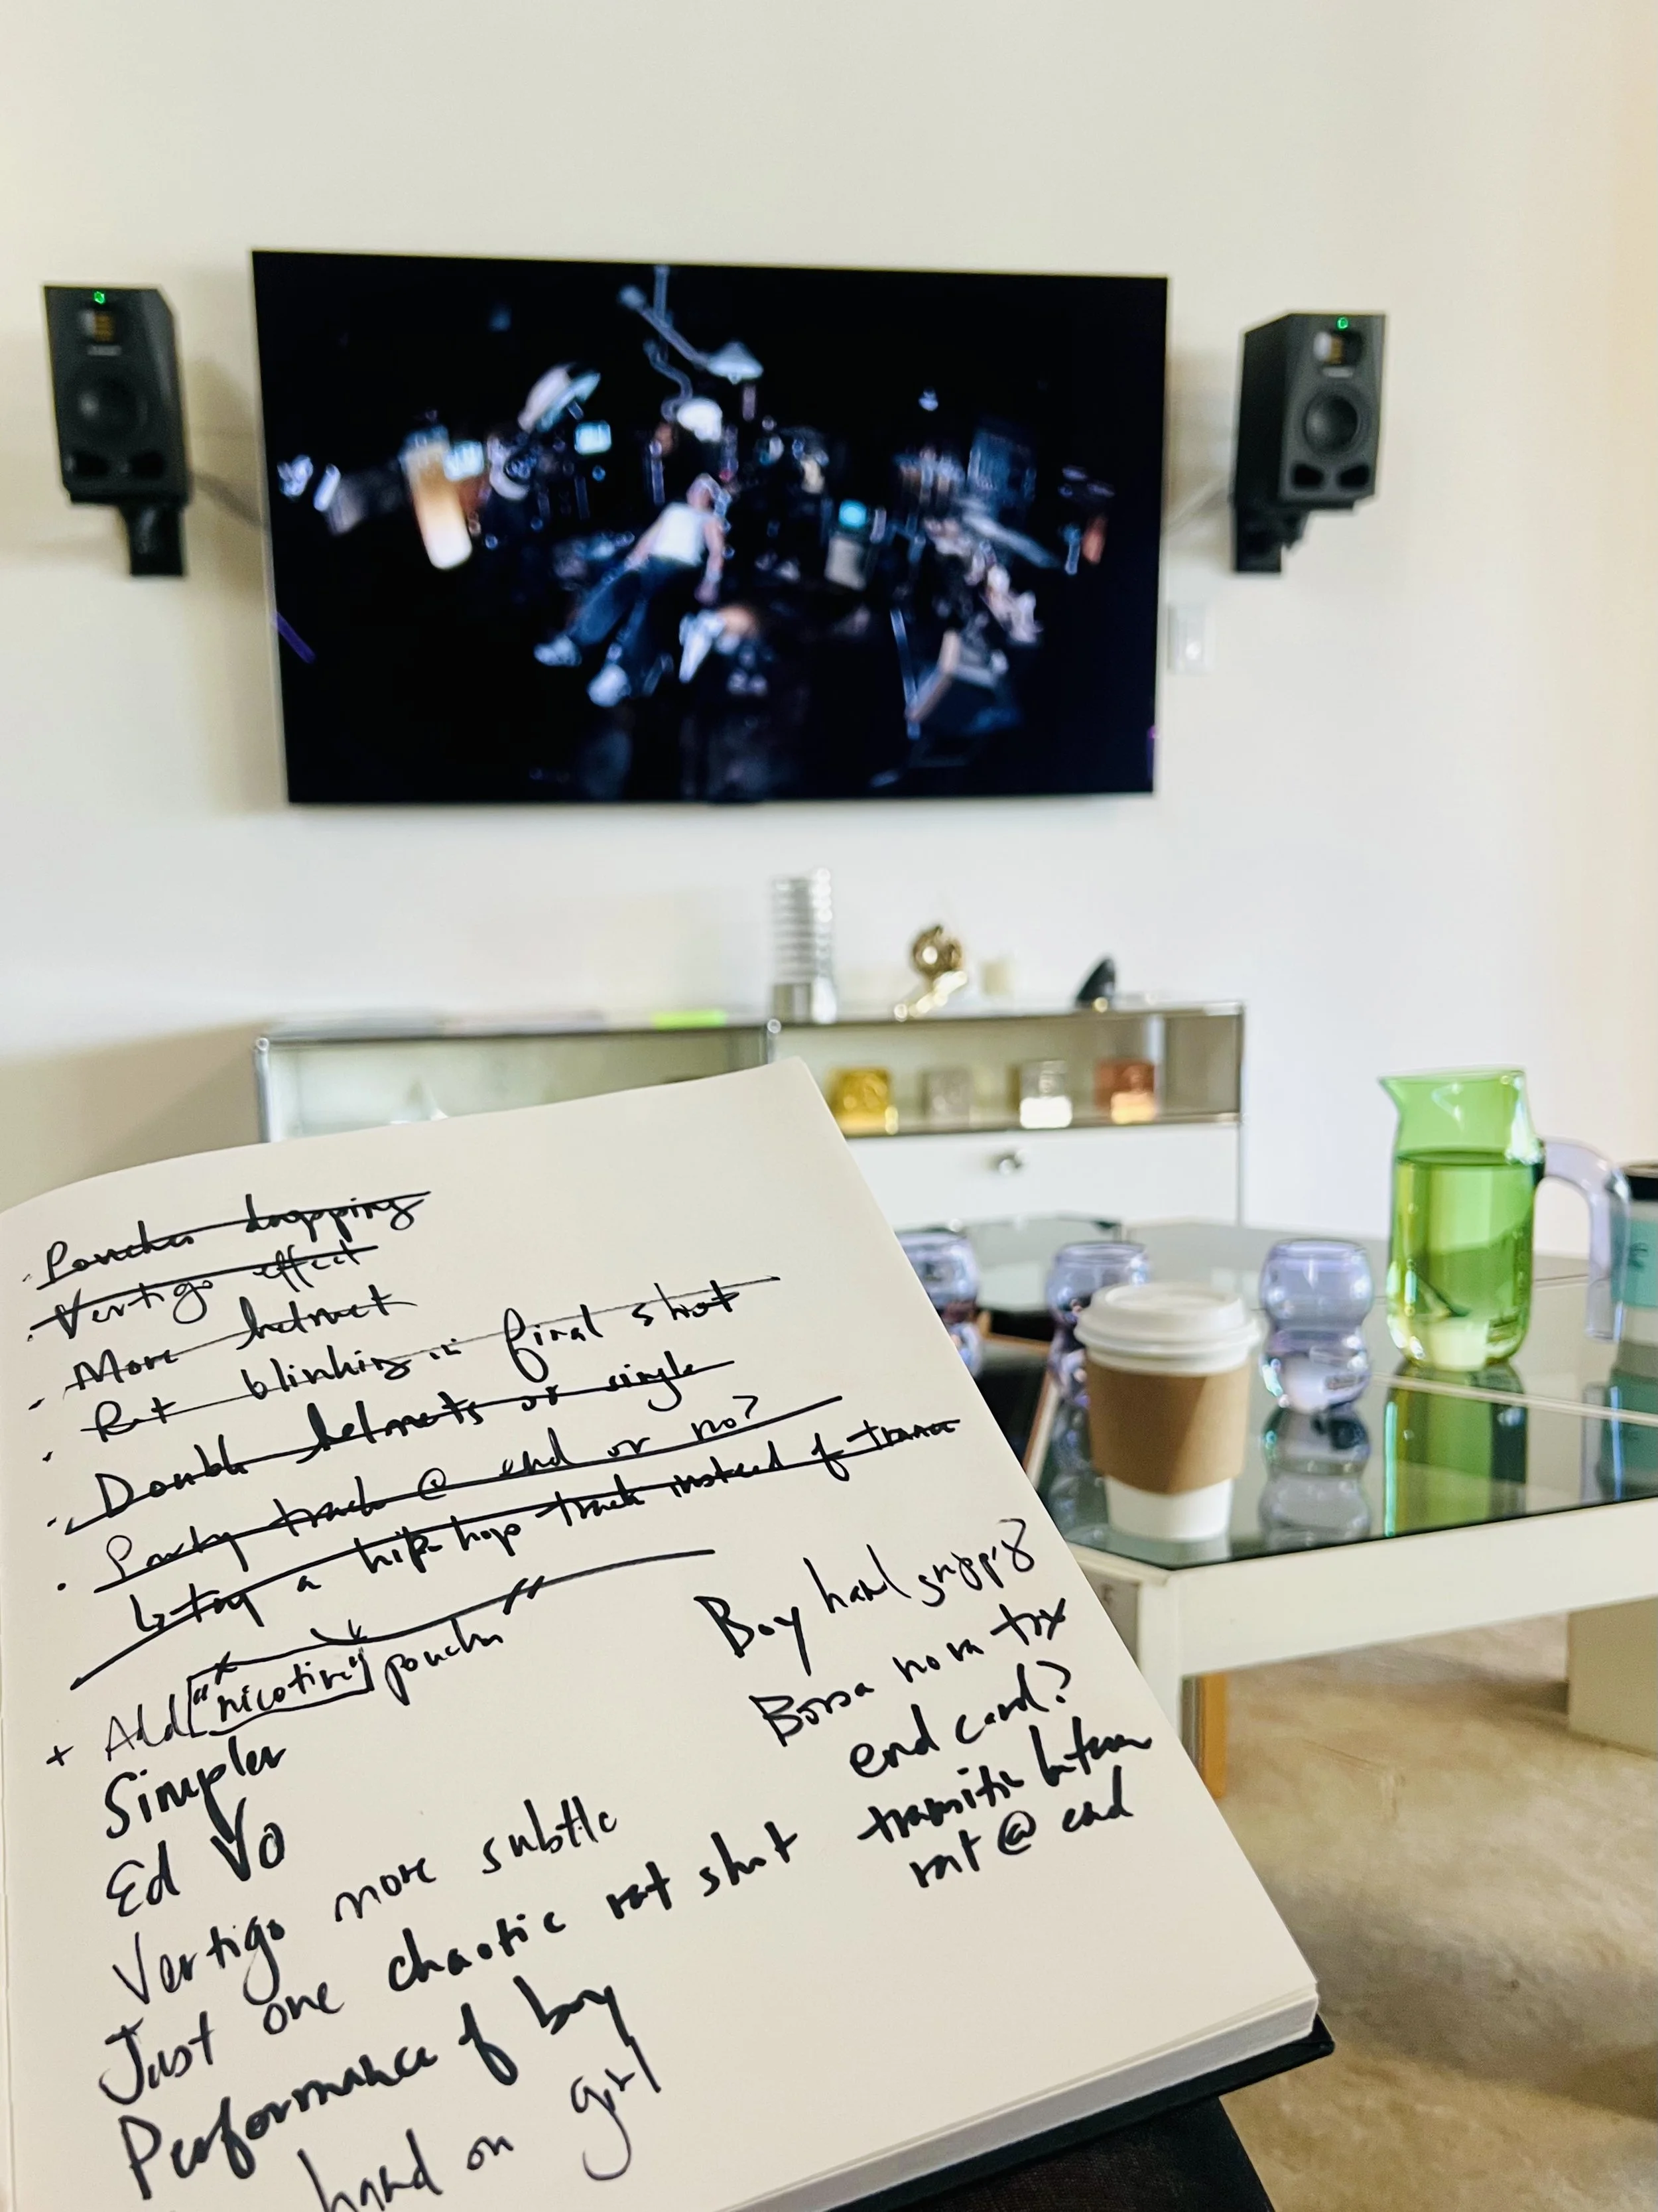 · Pouches dropping
· Vertigo effect
· More helmet
· Rat blinking in final shot
· Double helmets or single
· Party track @ end or no?
↳ try a hip-hop track instead of trance
+ Add "nicotine" pouches
Simpler
Ed VO
Vertigo more subtle
Just one chaotic rat shot
Performance of boy
hand on girl
Boy hand
Bossa nova trx
end card?
between
rat @ end